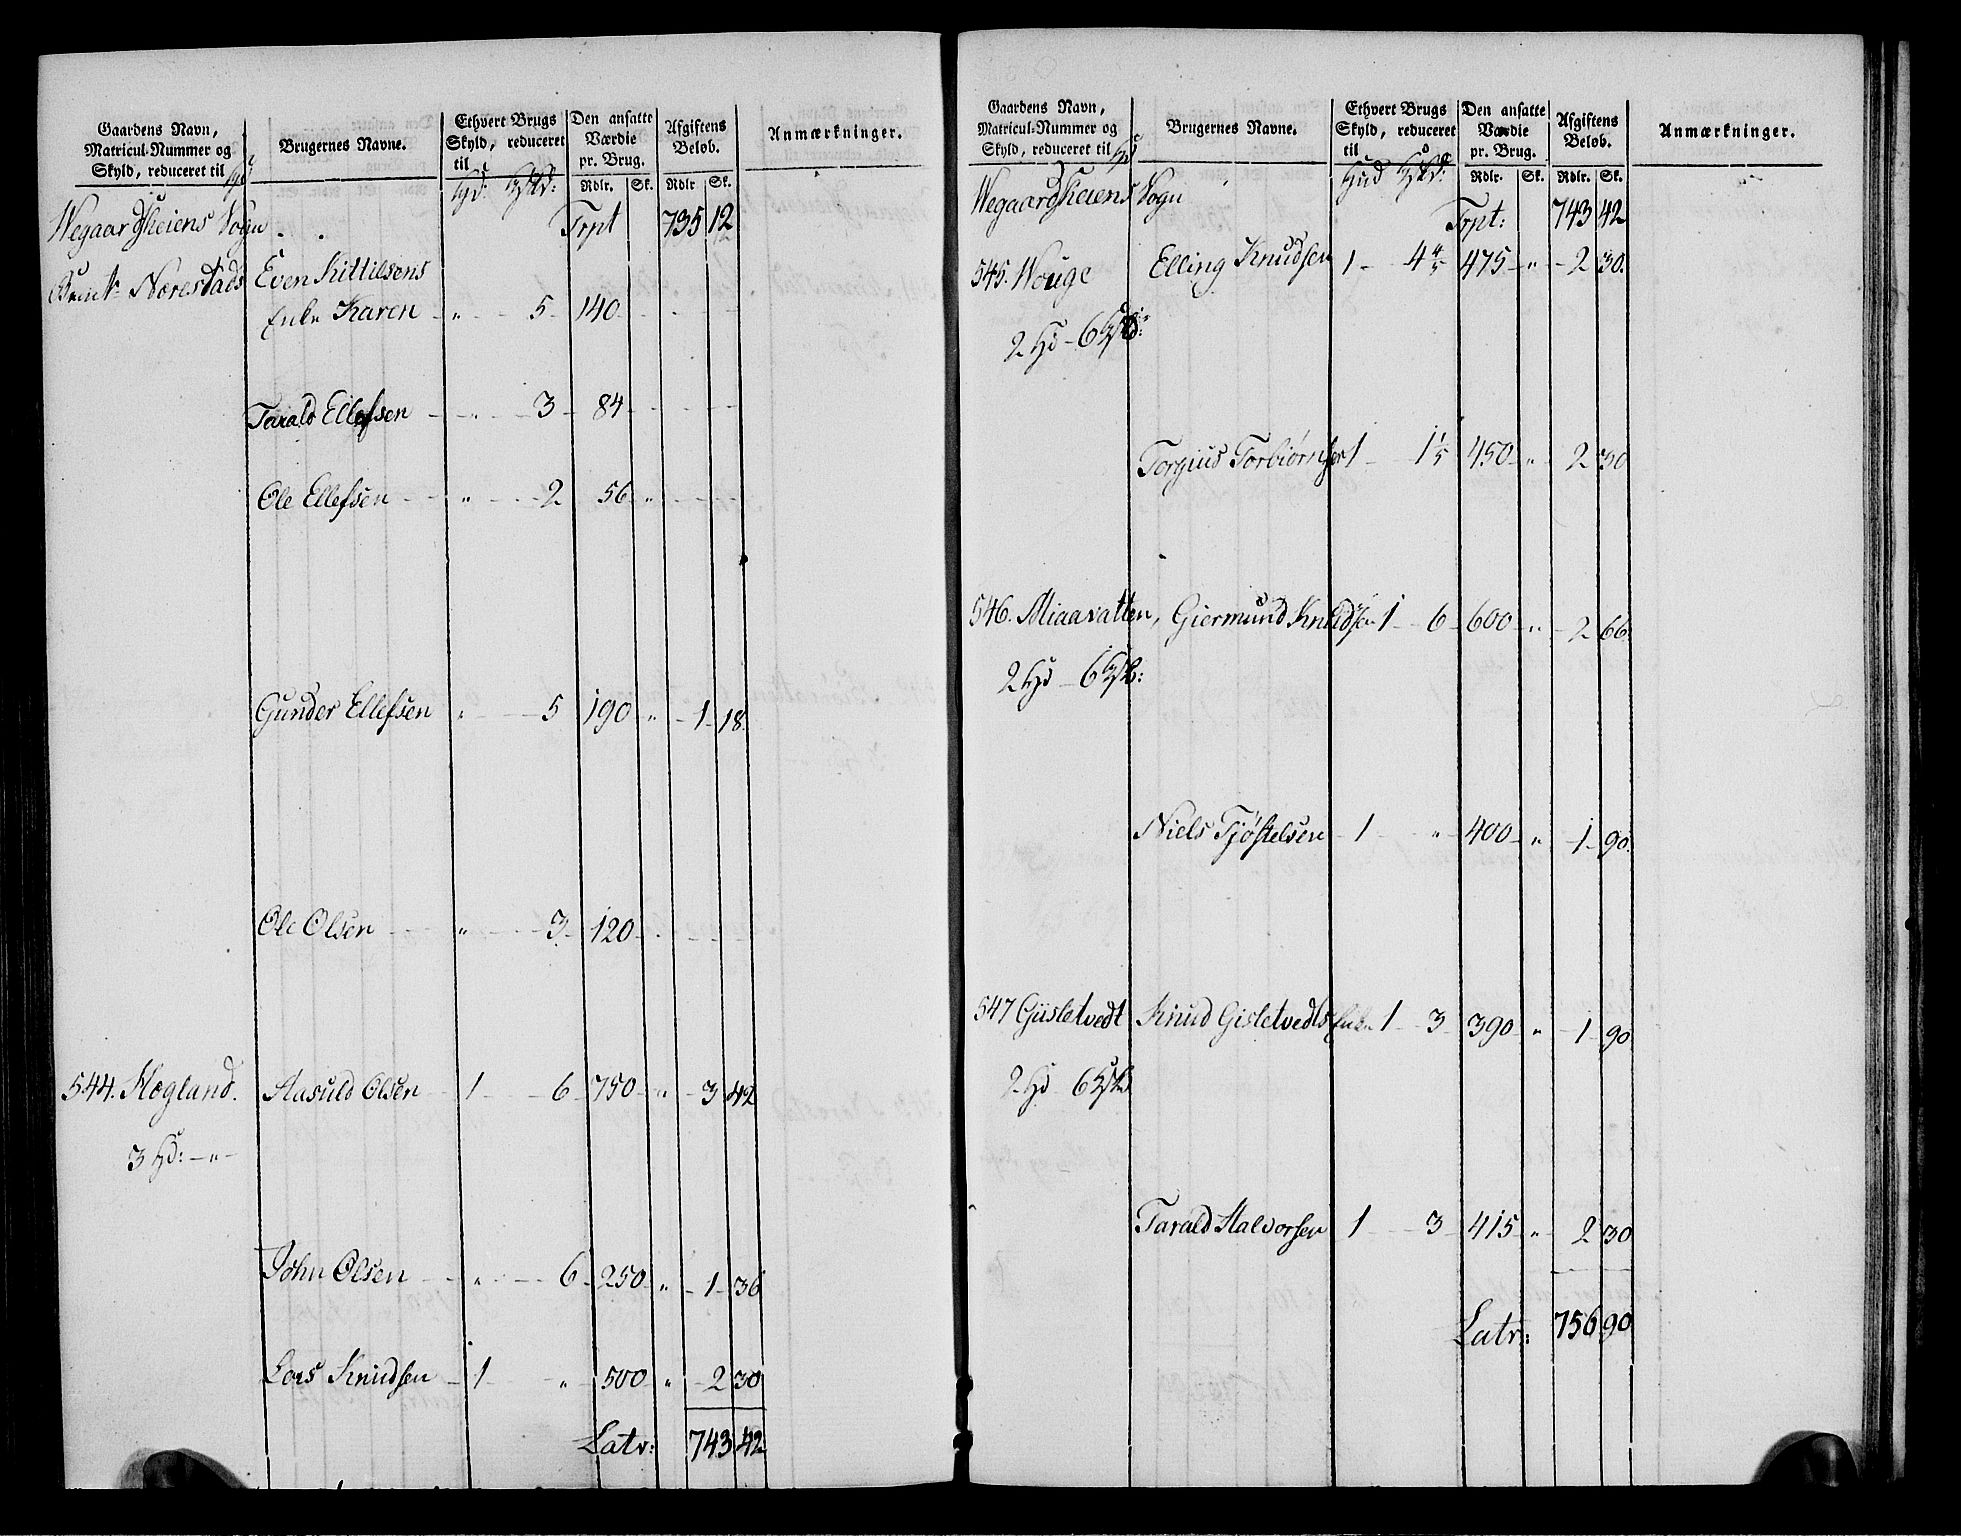 Gaardens Navn, Matricul-Nummer og Skyld, reduceret til Hd | Brugernes Navne. | Ethvert Brugs Skyld, reduceret til | Den ansatte Værdie pr. Brug. | Afgiftens Beløb. | Anmærkninger.
Rdlr. Sk. Rdlr Sk.
Wegaardsheiens Sogn Trpt 735 12
Norestads Even Kittilsens
Enke Karen " 5 140
Tarald Ellefsen " 3 84
Ole Ellefsen " 2 56 "
Gunder Ellefsen " 5 190 " 1 18.
Ole Olsen " 3 120
544. Hogland. Aasuld Olsen 1 6 750 " 3 42
3 Hd: "
John Olsen " 6 250 " 1 36
Lars Knudsen 1 " 500 " 2 30
Latr: 743 42
Gaardens Navn, Matricul-Nummer og Skyld, reduceret til Hd | Brugernes Navne. | Ethvert Brugs Skyld, reduceret til | Den ansatte Værdie pr. Brug. | Afgiftens Beløb. | Anmærkninger.
Rdlr. Sk. Rdlr. Sk.
Wegaardsheiens Sogn Trpt: 743 42
545. Wouge Elling Knudsen 1 4 4/5 475 " 2 30.
2 Hd 6
Torgius Torbiørnsen 1 1 1/5 450 " 2 30
546. Miaavatten, Giermund Knudsen 1 6 600 " 2 66
2 Hd 6
Niels Tjøstelsen 1 " 400 " 1 90.
547 Güsletvedt Knud Gisletvedts Enke 1 3 390 " 1 90
2 Hd 6
Tarald Halvorsen 1 3 415 " 2 30
Latr: 756 90